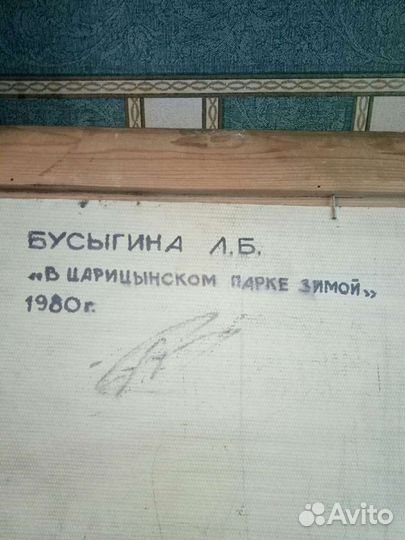 БУСЫГИНА Л.Б.
«В ЦАРИЦЫНСКОМ ПАРКЕ ЗИМОЙ»
1980г.
Avito